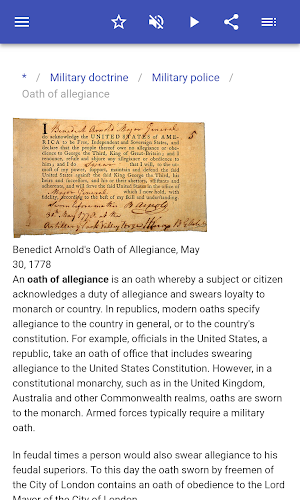 * / Military doctrine / Military police /
Oath of allegiance
I Benedict Arnold Major General
do acknowledge the UNITED STATES of AME-
RICA to be Free, Independent and Sovereign States, and
declare that the people thereof owe no allegiance or obe-
dience to George the Third, King of Great-Britain; and I
renounce, refute and abjure any allegiance or obedience to
him; and I do Swear that I will, to the ut-
most of my power, support, maintain and defend the said
United States against the said King George the Third, his
heirs and successors, and his or their abettors, assistants and
adherents, and will serve the said United States in the office of
Major General which I now hold, with
fidelity, according to the best of my skill and understanding.
Benedict Arnold's Oath of Allegiance, May
30, 1778
An oath of allegiance is an oath whereby a subject or citizen
acknowledges a duty of allegiance and swears loyalty to
monarch or country. In republics, modern oaths specify
allegiance to the country in general, or to the country's
constitution. For example, officials in the United States, a
republic, take an oath of office that includes swearing
allegiance to the United States Constitution. However, in a
constitutional monarchy, such as in the United Kingdom,
Australia and other Commonwealth realms, oaths are sworn
to the monarch. Armed forces typically require a military
oath.
In feudal times a person would also swear allegiance to his
feudal superiors. To this day the oath sworn by freemen of
the City of London contains an oath of obedience to the Lord
Mayor of the City of London